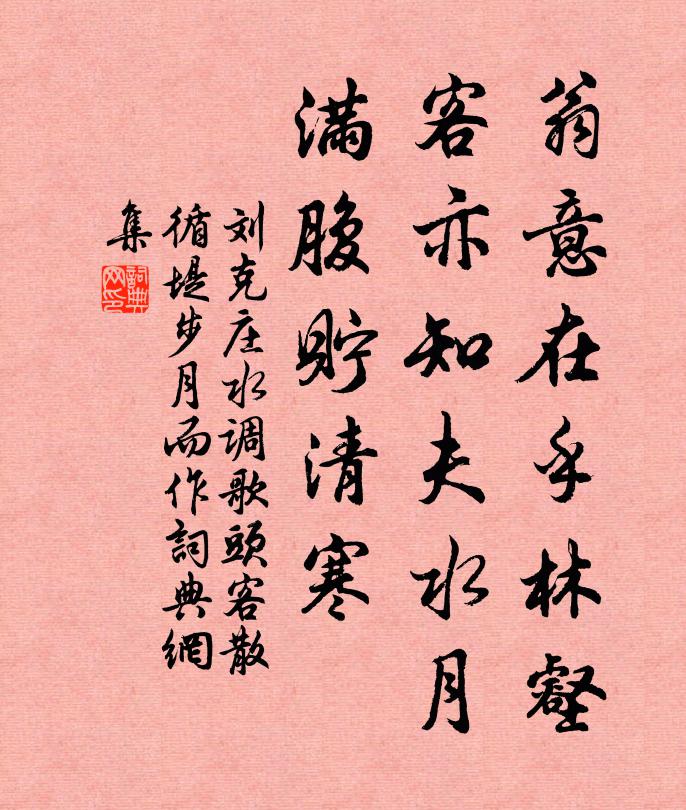 翁意在乎林壑
客亦知夫水月
满腹贮清寒
刘克庄水调歌头客散
循堤步月而作词典網
集
詞典网印